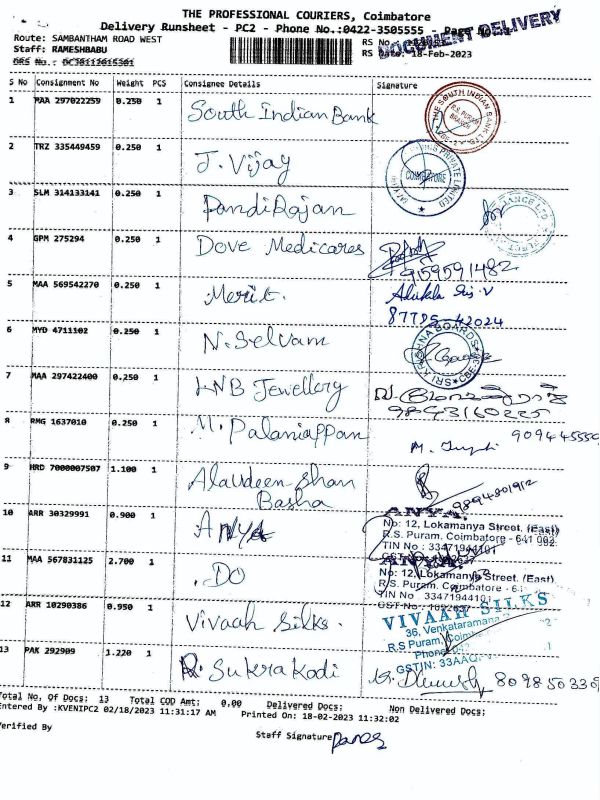 THE PROFESSIONAL COURIERS, Coimbatore
Delivery Runsheet - PC2 - Phone No.:0422-3505555 - Page No.
DOCUMENT DELIVERY
Route: SAMBANTHAM ROAD WEST
RS No
Staff: RAMESHBABU
RS Date: 18-Feb-2023
DRS No.: DC30112015301
S No Consignment No Weight PCS Consignee Details Signature
1 MAA 297022259 0.250 1 South Indian Bank
THE SOUTH INDIAN BANK LTD
R.S. PURAM BRANCH
2 TRZ 335449459 0.250 1 J. Vijay
PRIVATE LIMITED
COIMBATORE
3 SLM 314133141 0.250 1 Pandi Rajan
4 GPM 275294 0.250 1 Dove Medicares
9159591482
5 MAA 569542270 0.250 1 Merit.
6 MYD 4711102 0.250 1 N. Selvam
SRI KRISHNA BOARDS CBE
7 MAA 297422400 0.250 1 LNB Jewellery
9843160225
8 RMG 1637010 0.250 1 M. Palaniappan
9 HRD 7000007507 1.100 1 Alaudeen Shan
Basha
9894801912
10 ARR 30329991 0.900 1 ANYA
ANYA.
No: 12, Lokamanya Street, (East)
R.S. Puram, Coimbatore - 641 002.
TIN No : 33471944101
11 MAA 567831125 2.700 1 .DO
ANYA.
No: 12, Lokamanya Street, (East)
R.S. Puram, Coimbatore - 6
TIN No : 33471944101
12 ARR 10290386 0.950 1 Vivaah Silks.
VIVAAH SILKS
36, Venkataramana
R.S Puram,
Phone
GSTIN: 33AAG
13 PAK 292909 1.220 1 R. Sukra Kodi
Total No. Of Docs: 13 Total COD Amt: 0.00 Delivered Docs: Non Delivered Docs:
Entered By :KVENIPC2 02/18/2023 11:31:17 AM Printed On: 18-02-2023 11:32:02
Verified By
Staff Signature